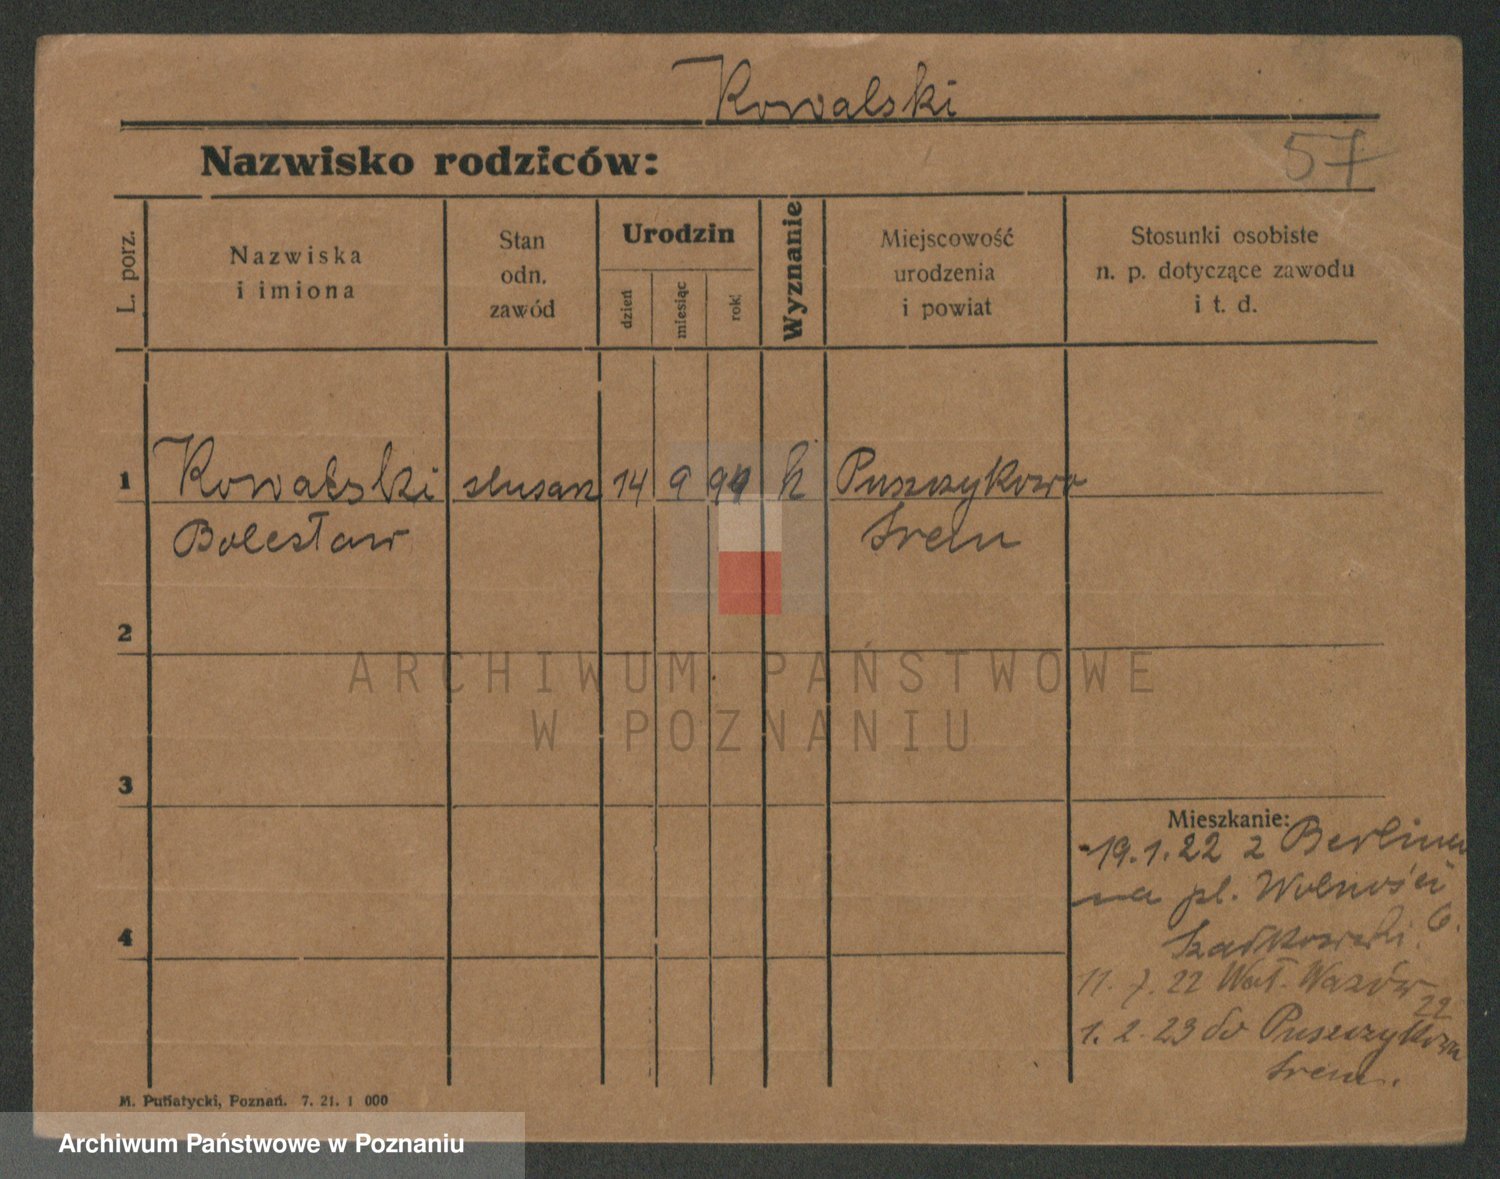 Kowalski
Nazwisko rodziców:
57
L. porz.
Nazwiska
i imiona
Stan
odn.
zawód
Urodzin
dzień
miesiąc
rok
Wyznanie
Miejscowość
urodzenia
i powiat
Stosunki osobiste
n. p. dotyczące zawodu
i t. d.
1 Kowalski ślusarz 14 9 k Puszczykowo
Bolesław Śrem
2
ARCHIWUM PAŃSTWOWE
W POZNANIU
3
Mieszkanie:
19.1.22 z Berlina
na pl. Wolności
6.
4
11. 7. 22 Wał. Wazów
22
1. 2. 23 do Puszczykowa
Śrem.
M. Putiatycki, Poznań. 7. 21. 1 000
Archiwum Państwowe w Poznaniu